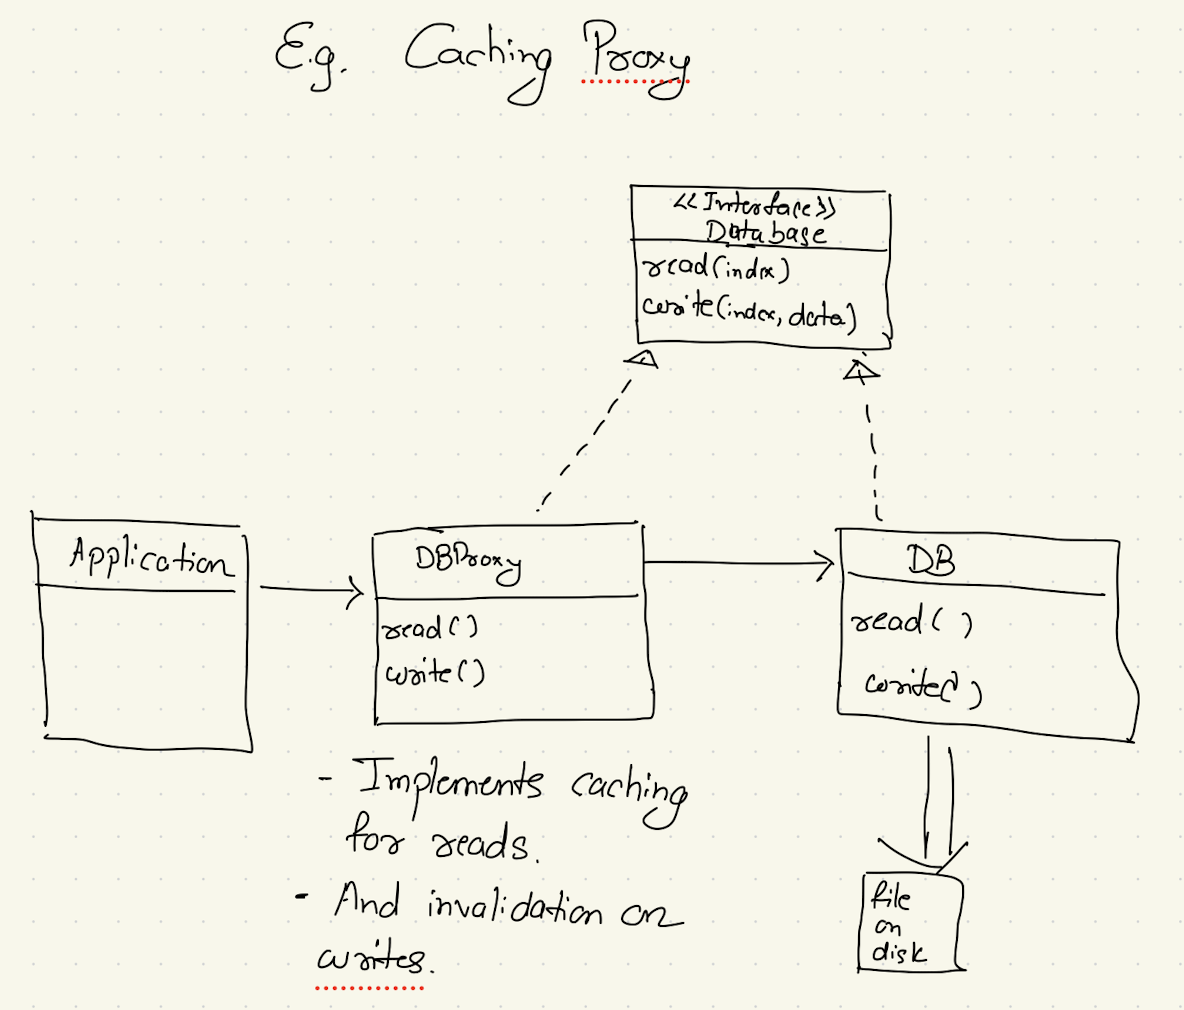 E.g. Caching Proxy
<<Interface>>
Database
read(index)
write(index, data)
Application
DBProxy
read()
write()
DB
read( )
write( )
- Implements caching
for reads.
- And invalidation on
writes.
file
on
disk